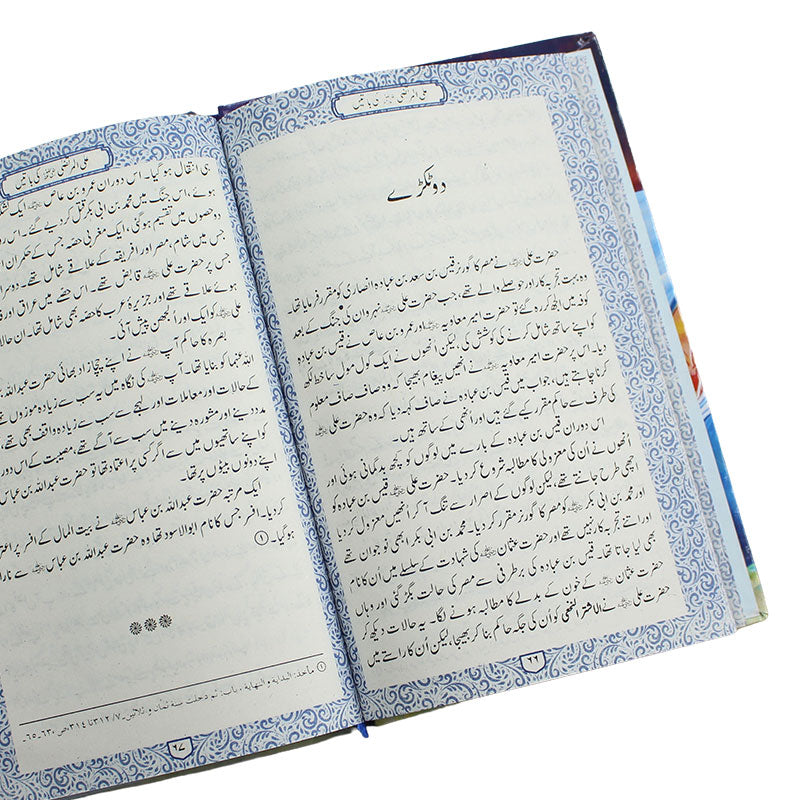 علی المرتضیٰ رضی اللہ عنہ کی باتیں
دو ٹکڑے
حضرت علی رضی اللہ عنہ نے مصر کا گورنر قیس بن سعد بن عبادہ انصاری کو مقرر فرمایا تھا۔
وہ بہت تجربہ کار اور حوصلے والے تھے، جب حضرت علی رضی اللہ عنہ نہروان کی جنگ کے بعد
کوفہ میں الجھ کر رہ گئے تو حضرت امیر معاویہ رضی اللہ عنہ اور عمرو بن عاص نے قیس بن عبادہ
کو اپنے ساتھ شامل کرنے کی کوشش کی، لیکن انھوں نے ایک گول مول سا خط لکھ
دیا۔ اس پر حضرت امیر معاویہ رضی اللہ عنہ نے انھیں پیغام بھیجا کہ وہ صاف صاف معلوم
کرنا چاہتے ہیں، جواب میں قیس بن عبادہ نے صاف کہہ دیا کہ وہ حضرت علی رضی اللہ عنہ
کی طرف سے حاکم مقرر کیے گئے ہیں اور انھی کے ساتھ ہیں۔
اس دوران قیس بن عبادہ کے بارے میں لوگوں کو کچھ بدگمانی ہوئی اور
انھوں نے ان کی معزولی کا مطالبہ شروع کر دیا۔ حضرت علی رضی اللہ عنہ قیس بن عبادہ کو
اچھی طرح جانتے تھے، لیکن لوگوں کے اصرار سے تنگ آ کر انھیں معزول کر دیا
اور محمد بن ابی بکر کو مصر کا گورنر مقرر کر دیا۔ محمد بن ابی بکر ابھی نوجوان تھے
اور اتنے تجربہ کار نہیں تھے اور حضرت عثمان رضی اللہ عنہ کی شہادت کے سلسلے میں اُن کا نام
بھی لیا جاتا تھا۔ قیس بن عبادہ کی برطرفی سے مصر کی حالت بگڑ گئی اور وہاں
حضرت عثمان رضی اللہ عنہ کے خون کے بدلے کا مطالبہ ہونے لگا۔ یہ حالات دیکھ کر
حضرت علی رضی اللہ عنہ نے الاشتر النخعی کو اُن کی جگہ حاکم بنا کر بھیجا، لیکن اُن کا راستے میں
۶۶
علی المرتضیٰ رضی اللہ عنہ کی باتیں
ہی انتقال ہو گیا۔ اس دوران عمرو بن عاص رضی اللہ عنہ ایک
ہوئے، اس جنگ میں محمد بن ابی بکر قتل کر دیے گئے۔ اس
دو حصوں میں تقسیم ہو گئی، ایک مغربی حصہ جس کے حکمران
جس میں شام، مصر اور افریقہ کے علاقے شامل تھے۔ دوسرا
جس پر حضرت علی رضی اللہ عنہ قابض تھے۔ اس حصے میں عراق اور
ہوئے علاقے تھے اور جزیرہ عرب کا حصہ بھی شامل تھا۔ ان
علی رضی اللہ عنہ کو ایک اور اُلجھن پیش آئی۔
بصرہ کا حاکم آپ رضی اللہ عنہ نے اپنے چچا زاد بھائی حضرت عبد اللہ
اللہ عنہما کو بنایا تھا۔ آپ رضی اللہ عنہ کی نگاہ میں یہ سب سے زیادہ موزوں
کے حالات اور معاملات اور لہجے سے سب سے زیادہ واقف بھی تھے،
مدد دینے اور مشورہ دینے میں سب سے آگے تھے، مصیبت کے اس دور
کو اپنے ساتھیوں میں سے اگر کسی پر اعتماد تھا تو حضرت عبد اللہ بن عباس
اپنے دونوں بیٹوں پر تھا۔
ایک مرتبہ حضرت عبد اللہ بن عباس رضی اللہ عنہ نے بیت المال کے افسر پر
کر دیا۔ افسر جس کا نام ابوالاسود تھا وہ حضرت عبد اللہ بن عباس رضی اللہ عنہ سے
ہو گیا۔ ①
① ماخذ: البدایۃ والنہایۃ، باب: ثم دخلت سنۃ ثمان و ثلاثین، ۳۱۲/۷ تا ۳۱۴، ص ۶۳۰۔۶۵
۶۷